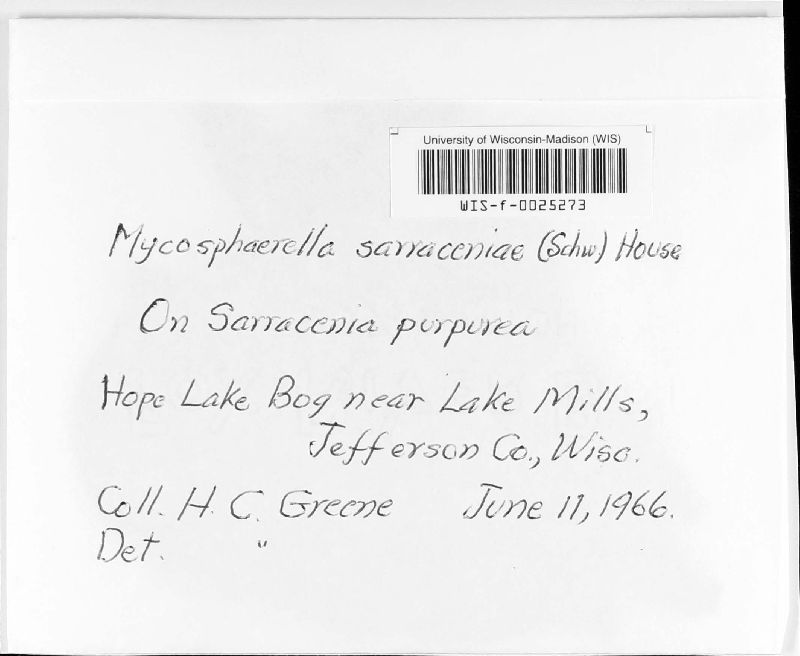 University of Wisconsin-Madison (WIS)
WIS-f-0025273
Mycosphaerella sarraceniae (Schw) House
On Sarracenia purpurea
Hope Lake Bog near Lake Mills,
Jefferson Co., Wisc.
Coll. H. C. Greene June 11, 1966.
Det. "